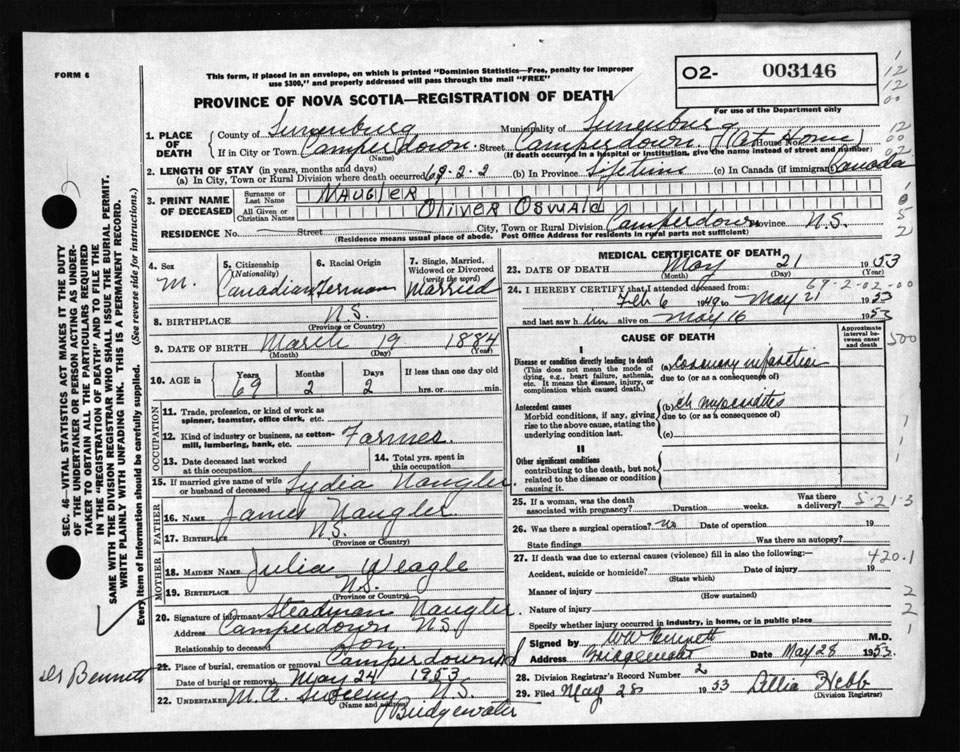 FORM 6
This form, if placed in an envelope, on which is printed "Dominion Statistics—Free, penalty for improper
use $300," and properly addressed will pass through the mail "FREE"
02- 003146
For use of the Department only
PROVINCE OF NOVA SCOTIA—REGISTRATION OF DEATH
1. PLACE OF DEATH
County of Lunenburg Municipality of Lunenburg
If in City or Town Camperdown Street Camperdown House No. (At Home)
(Name) (If death occurred in a hospital or institution, give the name instead of street and number)
2. LENGTH OF STAY (in years, months and days)
(a) In City, Town or Rural Division where death occurred 69-2-2 (b) In Province Lifetime (c) In Canada (if immigrant) Canada
3. PRINT NAME OF DECEASED
Surname or Last Name NAUGLER
All Given or Christian Names OLIVER OSWALd
RESIDENCE No. Street City, Town or Rural Division Camperdown Province N.S.
(Residence means usual place of abode. Post Office Address for residents in rural parts not sufficient)
4. Sex M.
5. Citizenship (Nationality) Canadian
6. Racial Origin German
7. Single, Married, Widowed or Divorced (write the word) Married
8. BIRTHPLACE N.S.
(Province or Country)
9. DATE OF BIRTH March 19 1884
(Month) (Day) (Year)
10. AGE in Years 69 Months 2 Days 2 If less than one day old
hrs. or min.
OCCUPATION
11. Trade, profession, or kind of work as
spinner, teamster, office clerk, etc.
12. Kind of industry or business, as cotton-
mill, lumbering, bank, etc. Farmer.
13. Date deceased last worked
at this occupation
14. Total yrs. spent in
this occupation
15. If married give name of wife
or husband of deceased Lydia Naugler.
FATHER
16. NAME James Naugler
17. BIRTHPLACE N.S.
(Province or Country)
MOTHER
18. MAIDEN NAME Julia Weagle
19. BIRTHPLACE N.S.
(Province or Country)
20. Signature of informant Steadman Naugler
Address Camperdown N.S.
Relationship to deceased Son
21. Place of burial, cremation or removal Camperdown
Date of burial or removal May 24 1953
22. UNDERTAKER M.A. Sweeny N.S.
(Name and address) Bridgewater
Dr Bennett
MEDICAL CERTIFICATE OF DEATH
23. DATE OF DEATH May 21 1953
(Month) (Day) (Year)
69-2-02-00
24. I HEREBY CERTIFY that I attended deceased from:
Feb 6 1949 to May 21 1953
and last saw him alive on May 16 1953
CAUSE OF DEATH
Approximate interval between onset and death
I
Disease or condition directly leading to death
(This does not mean the mode of dying, e.g., heart failure, asthenia, etc. It means the disease, injury, or complication which caused death.)
(a) Coronary infarction
due to (or as a consequence of)
Antecedent causes
Morbid conditions, if any, giving rise to the above cause, stating the underlying condition last.
(b)
due to (or as a consequence of)
(c)
II
Other significant conditions
contributing to the death, but not related to the disease or condition causing it.
25. If a woman, was the death
associated with pregnancy? Duration weeks. Was there a delivery?
5-21-3
26. Was there a surgical operation? no Date of operation 19
State findings Was there an autopsy?
27. If death was due to external causes (violence) fill in also the following:—
420.1
Accident, suicide or homicide? Date of injury 19
(State which)
Manner of injury
(How sustained)
Nature of injury
Specify whether injury occurred in industry, in home, or in public place
Signed by WW Bennett M.D.
Address Bridgewater Date May 28 1953.
28. Division Registrar's Record Number 2
29. Filed May 28 1953 Lillia Hebb
(Division Registrar)
SEC. 46—VITAL STATISTICS ACT MAKES IT THE DUTY
OF THE UNDERTAKER OR PERSON ACTING AS UNDER-
TAKER TO OBTAIN ALL THE PARTICULARS REQUIRED
IN THE "REGISTRATION OF DEATH" AND TO FILE THE
SAME WITH THE DIVISION REGISTRAR WHO SHALL ISSUE THE BURIAL PERMIT.
WRITE PLAINLY WITH UNFADING INK. THIS IS A PERMANENT RECORD.
Every item of Information should be carefully supplied. (See reverse side for instructions.)